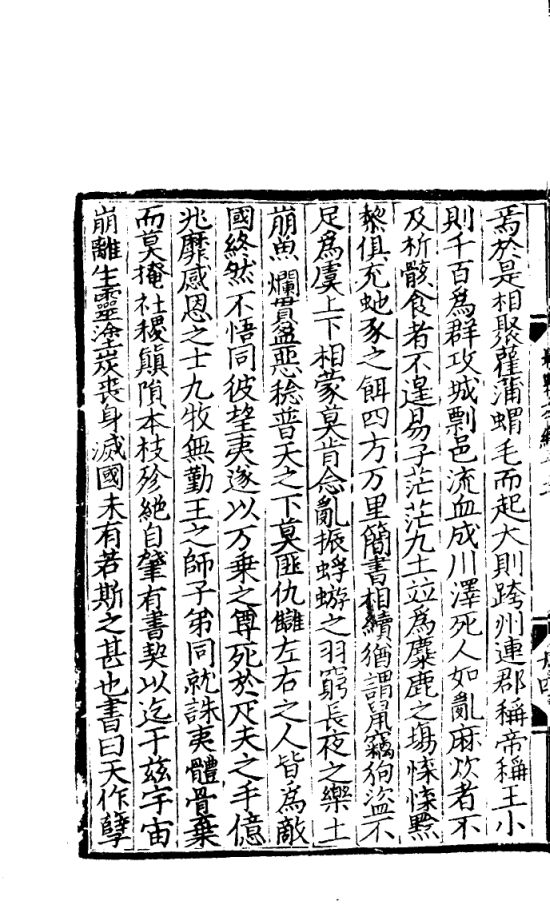 焉於是相聚雚蒲蝟毛而起大則跨州連郡稱帝稱王小
則千百為群攻城剽邑流血成川澤死人如亂麻炊者不
及析骸食者不遑易子茫茫九土並為麋鹿之場悚悚黔
黎俱充虵豕之餌四方万里簡書相續猶謂鼠竊狗盜不
足為虞上下相蒙莫肯念亂振蜉蝣之羽窮長夜之樂土
崩魚爛貫盈惡稔普天之下莫匪仇讎左右之人皆為敵
國終然不悟同彼望夷遂以万乗之尊死於疋夫之手億
兆靡感恩之士九牧無勤王之師子弟同就誅夷體骨棄
而莫掩社稷顛隕本枝殄絕自肇有書契以迄于兹宇宙
崩離生靈塗炭喪身滅國未有若斯之甚也書曰天作孽